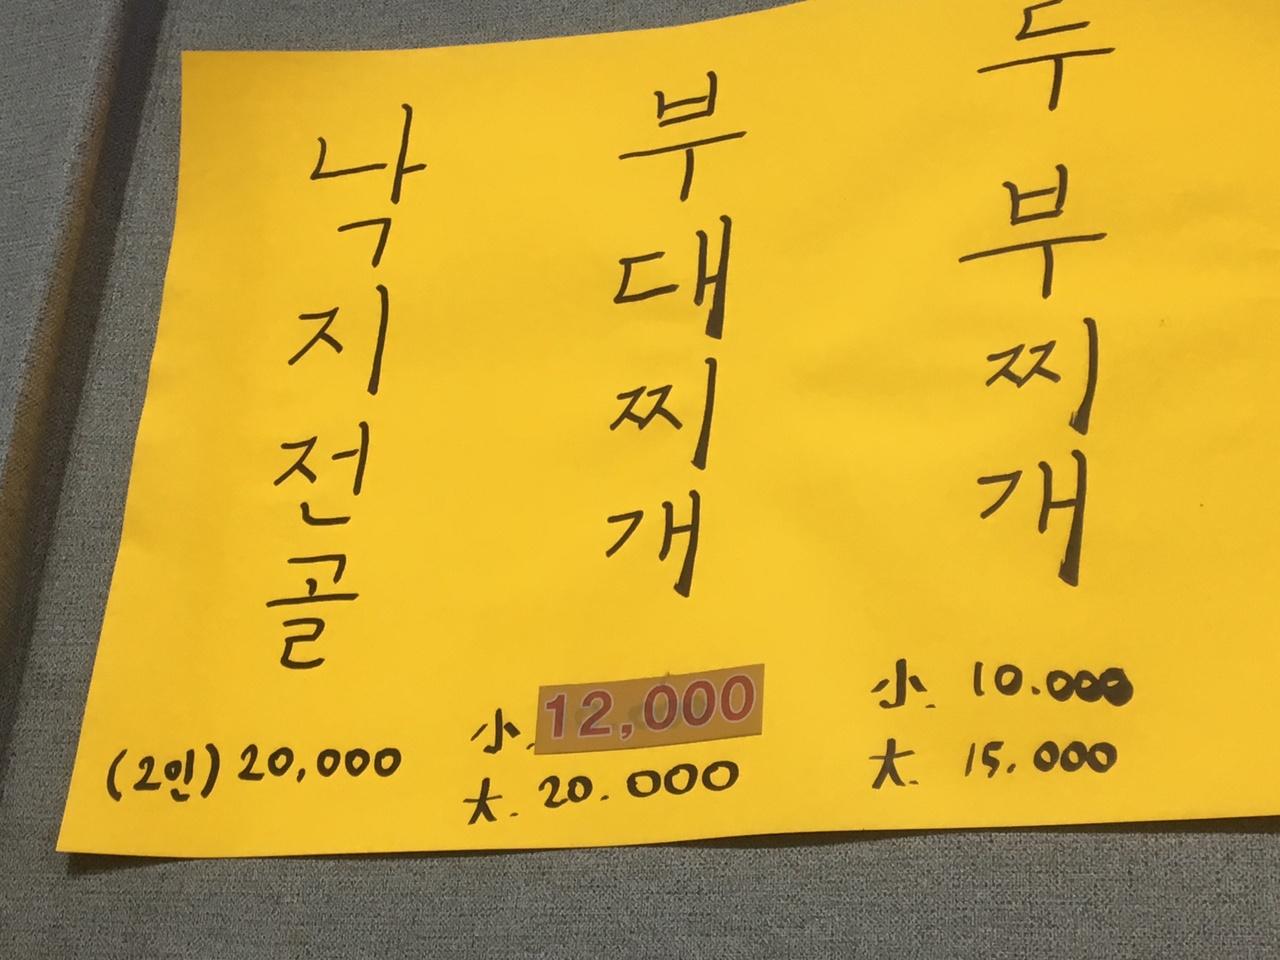 낙지전골
(2인) 20,000
부대찌개
小. 12,000
大. 20.000
두부찌개
小. 10.000
大. 15.000